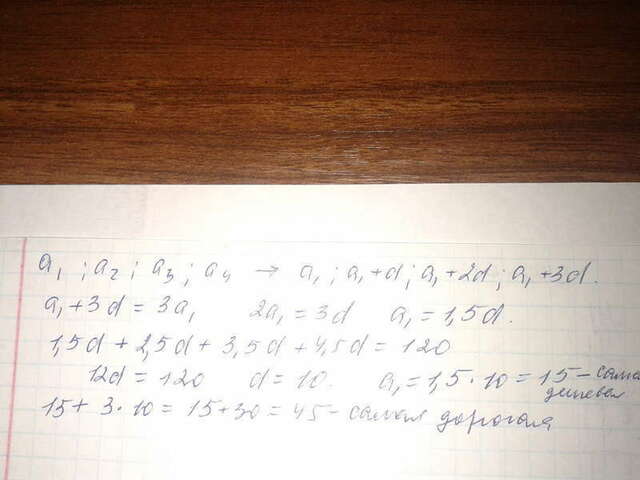 a₁ ; a₂ ; a₃ ; a₄ → a₁ ; a₁+d ; a₁+2d ; a₁+3d.
a₁+3d = 3a₁ 2a₁ = 3d a₁ = 1,5d.
1,5d + 2,5d + 3,5d + 4,5d = 120
12d = 120 d = 10. a₁ = 1,5·10 = 15 – сама
дешевая
15 + 3·10 = 15+30 = 45 – самая дорогая